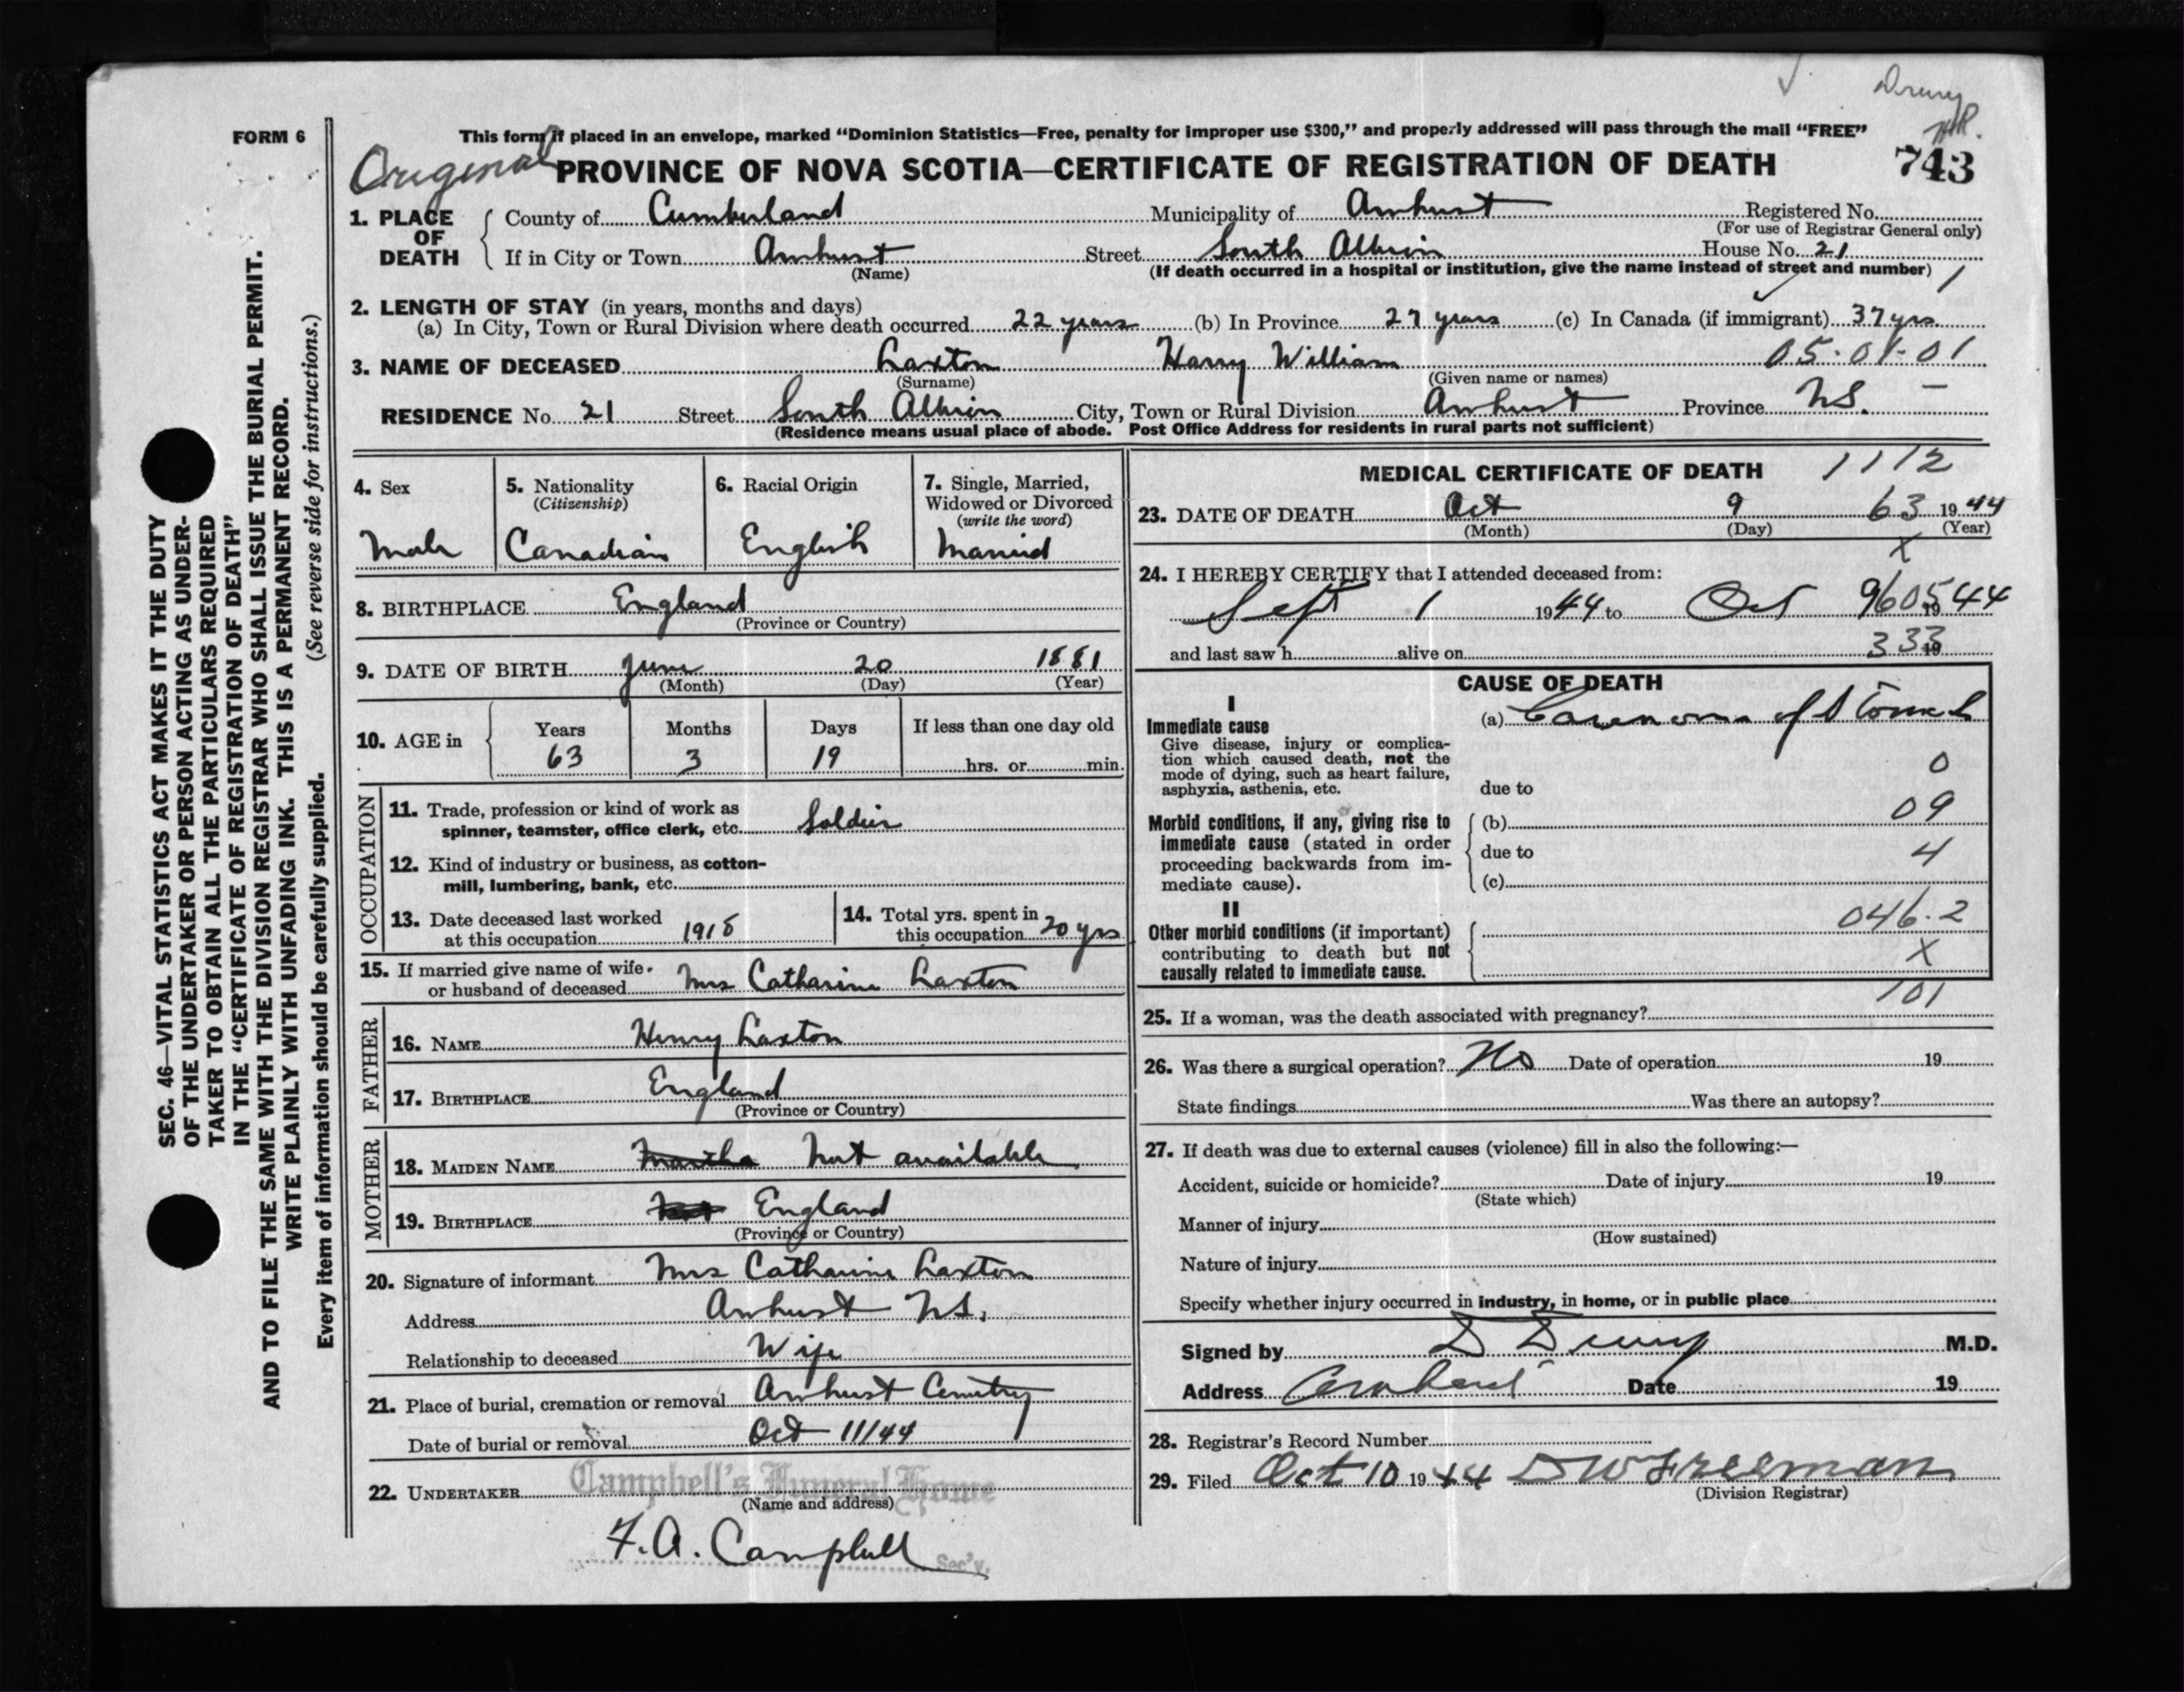 Drury
HR.
FORM 6
This form if placed in an envelope, marked “Dominion Statistics—Free, penalty for improper use $300,” and properly addressed will pass through the mail “FREE”
Original PROVINCE OF NOVA SCOTIA—CERTIFICATE OF REGISTRATION OF DEATH 743
1. PLACE OF DEATH
County of Cumberland Municipality of Amherst Registered No.
(For use of Registrar General only)
If in City or Town Amherst Street South Albion House No. 21
(Name) (If death occurred in a hospital or institution, give the name instead of street and number) 1
2. LENGTH OF STAY (in years, months and days)
(a) In City, Town or Rural Division where death occurred 22 years (b) In Province 27 years (c) In Canada (if immigrant) 37 yrs.
3. NAME OF DECEASED Laxton Harry William 05-01-01
(Surname) (Given name or names)
RESIDENCE No. 21 Street South Albion City, Town or Rural Division Amherst Province N.S. —
(Residence means usual place of abode. Post Office Address for residents in rural parts not sufficient)
4. Sex
Male
5. Nationality
(Citizenship)
Canadian
6. Racial Origin
English
7. Single, Married,
Widowed or Divorced
(write the word)
Married
8. BIRTHPLACE England
(Province or Country)
9. DATE OF BIRTH June 20 1881
(Month) (Day) (Year)
10. AGE in
Years Months Days If less than one day old
63 3 19 hrs. or min.
OCCUPATION
11. Trade, profession or kind of work as
spinner, teamster, office clerk, etc. Soldier
12. Kind of industry or business, as cotton-
mill, lumbering, bank, etc.
13. Date deceased last worked
at this occupation 1918
14. Total yrs. spent in
this occupation 20 yrs
15. If married give name of wife
or husband of deceased Mrs Catharine Laxton
FATHER
16. NAME Henry Laxton
17. BIRTHPLACE England
(Province or Country)
MOTHER
18. MAIDEN NAME Martha Not available
19. BIRTHPLACE Not England
(Province or Country)
20. Signature of informant Mrs Catharine Laxton
Address Amherst N.S.
Relationship to deceased Wife
21. Place of burial, cremation or removal Amherst Cemetry
Date of burial or removal Oct 11/44
22. UNDERTAKER Campbell's Funeral Home
(Name and address)
F.A. Campbell Sec'y.
MEDICAL CERTIFICATE OF DEATH 1112
23. DATE OF DEATH Oct 9 63 1944
(Month) (Day) (Year)
X
24. I HEREBY CERTIFY that I attended deceased from:
Sept 1 1944 to Oct 9 605 1944
and last saw h alive on 333 19
CAUSE OF DEATH
I
Immediate cause
Give disease, injury or complica-
tion which caused death, not the
mode of dying, such as heart failure,
asphyxia, asthenia, etc.
(a) Carcinoma of Stomach
0
due to
Morbid conditions, if any, giving rise to
immediate cause (stated in order
proceeding backwards from im-
mediate cause).
(b) 09
due to 4
(c)
II
Other morbid conditions (if important)
contributing to death but not
causally related to immediate cause.
046.2
X
101
25. If a woman, was the death associated with pregnancy?
26. Was there a surgical operation? No Date of operation 19
State findings Was there an autopsy?
27. If death was due to external causes (violence) fill in also the following:—
Accident, suicide or homicide? Date of injury 19
(State which)
Manner of injury
(How sustained)
Nature of injury
Specify whether injury occurred in industry, in home, or in public place
Signed by D Drury M.D.
Address Amherst Date 19
28. Registrar's Record Number
29. Filed Oct 10 1944 D W Freeman
(Division Registrar)
SEC. 46—VITAL STATISTICS ACT MAKES IT THE DUTY
OF THE UNDERTAKER OR PERSON ACTING AS UNDER-
TAKER TO OBTAIN ALL THE PARTICULARS REQUIRED
IN THE “CERTIFICATE OF REGISTRATION OF DEATH”
AND TO FILE THE SAME WITH THE DIVISION REGISTRAR WHO SHALL ISSUE THE BURIAL PERMIT.
WRITE PLAINLY WITH UNFADING INK. THIS IS A PERMANENT RECORD.
Every item of information should be carefully supplied. (See reverse side for instructions.)